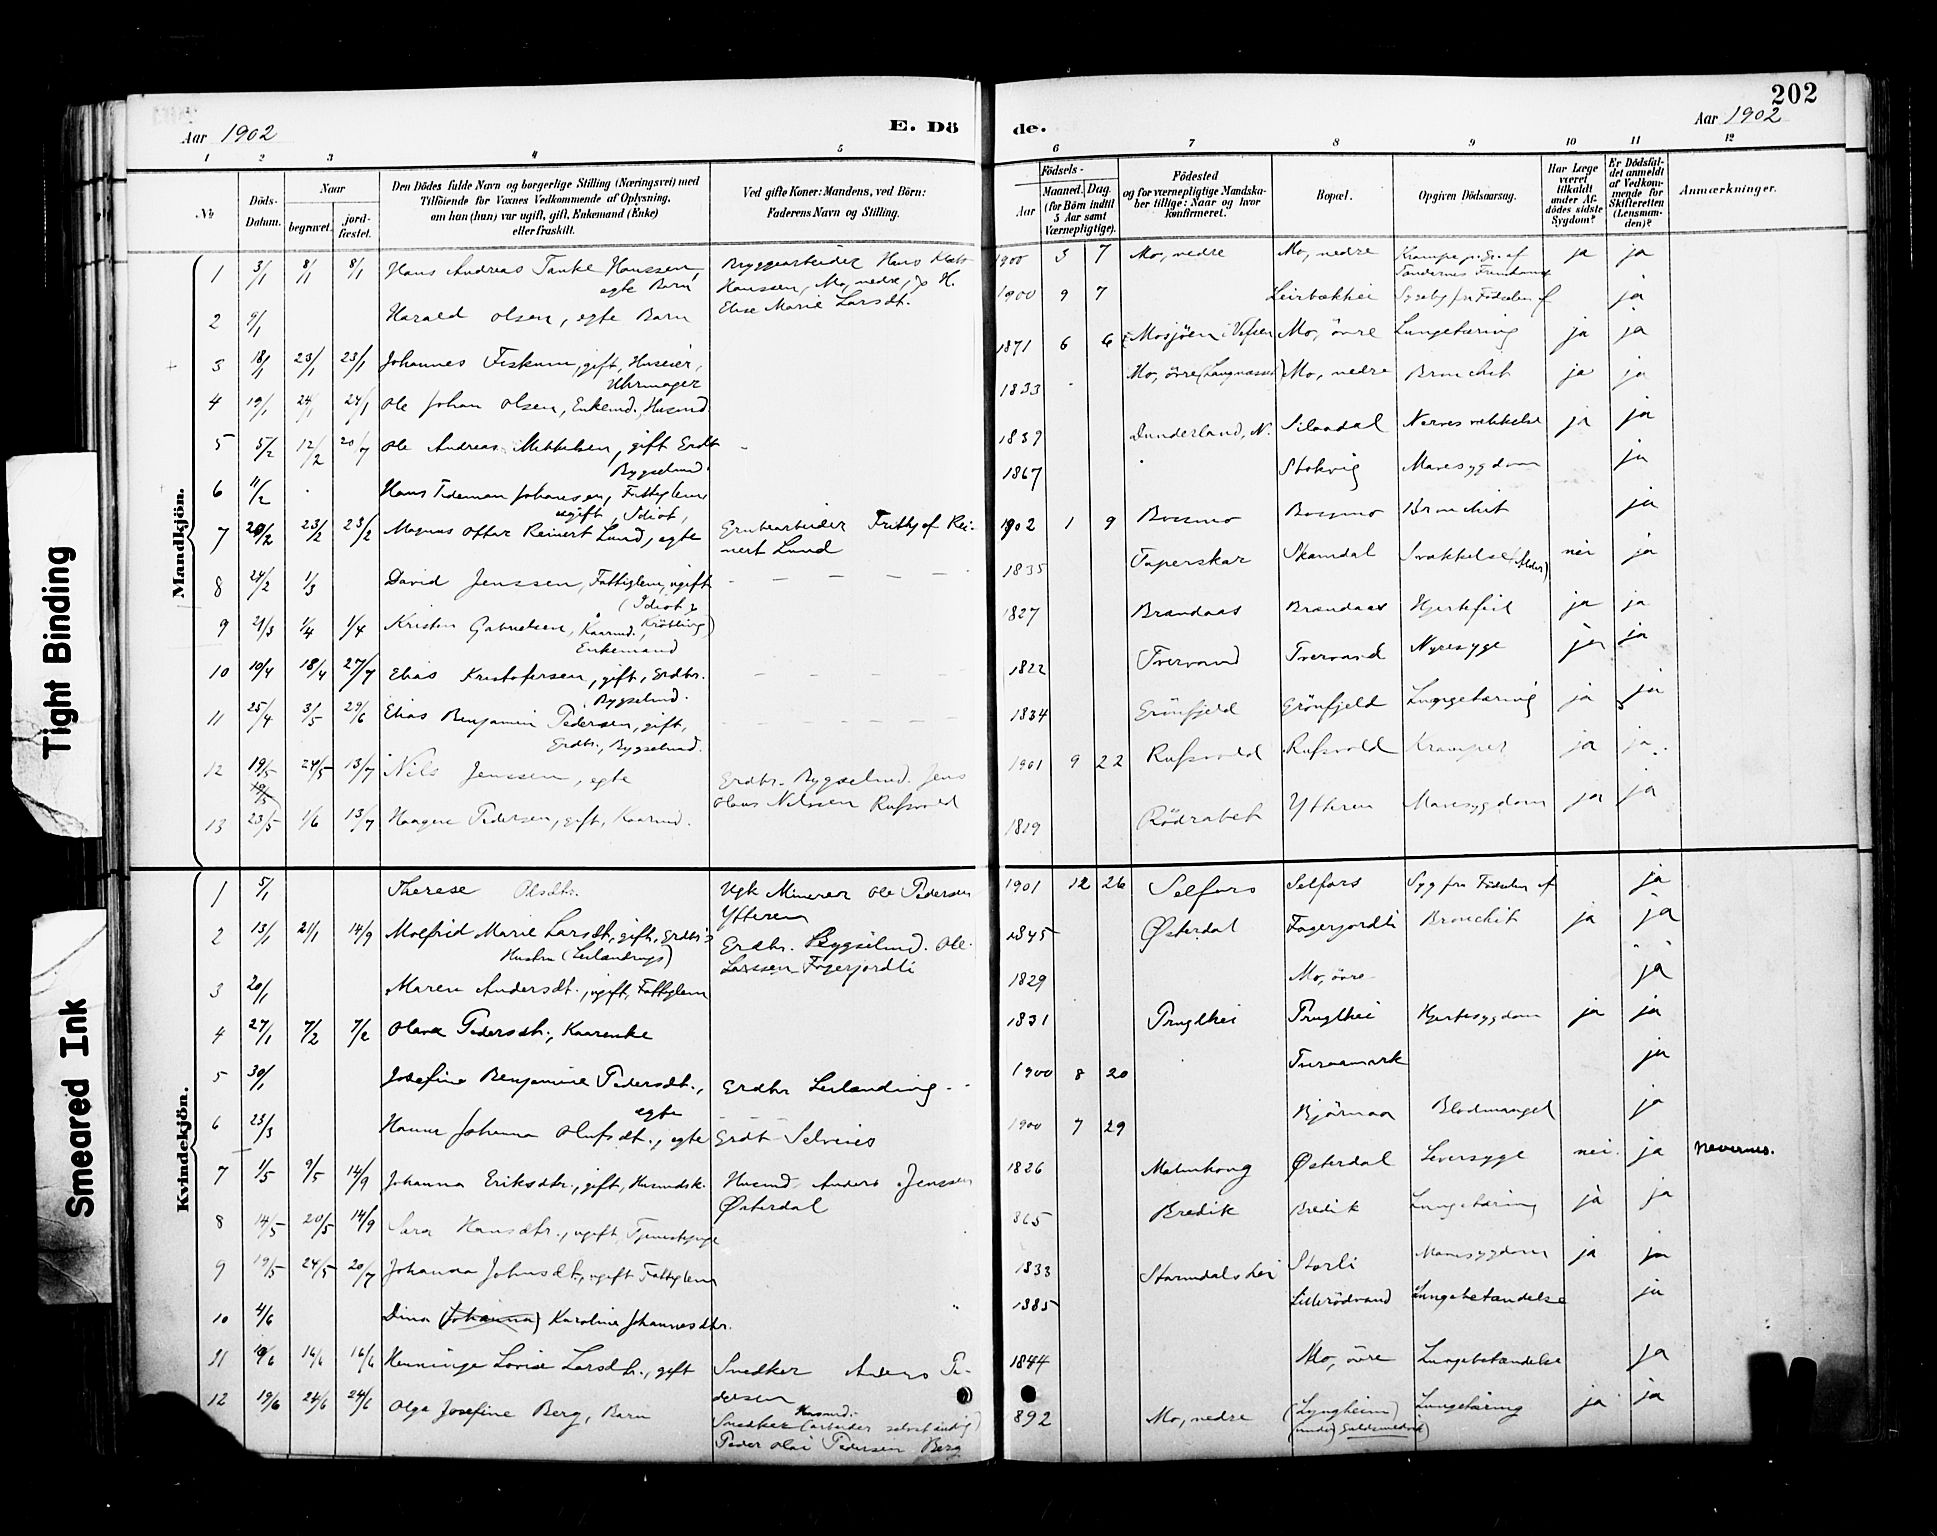 202
Aar 1902
E. Dö
de.
Aar 1902
1 2 3 4 5 6 7 8 9 10 11 12
No
Döds-Datum.
Naar
begravet.
jord-fæstet.
Den Dödes fulde Navn og borgerlige Stilling (Næringsvei) med
Tilföiende for Voxnes Vedkommende af Oplysning,
om han (hun) var ugift, gift, Enkemand (Enke)
eller fraskilt.
Ved gifte Koner: Mandens, ved Börn:
Faderens Navn og Stilling.
Födsels-
Aar
Maaned. Dag.
(for Börn indtil
5 Aar samt
Værnepligtige).
Födested
og for værnepligtige Mandska-
ber tillige: Naar og hvor
konfirmeret.
Bopæl.
Opgiven Dödsaarsag.
Har Læge
været
tilkaldt
under Af-
dödes sidste
Sygdom?
Er Dödsfal-
det anmeldt
af Vedkom-
mende for
Skifteretten
(Lensman-
den)?
Anmærkninger.
Mandkjön.
1 3/1 8/1 8/1 Hans Andreas Tanke Hanssen, egte Barn Bryggearbeider Hans
Hanssen, Mo, nedre, og H.
Elise Marie Larsdt. 1900 3 7 Mo, nedre Mo, nedre Krampe ja ja
2 9/1 Harald Olsen, egte Barn 1900 9 7 Leirbækhei ja
3 18/1 23/1 23/1 Johannes Fiskum, gift, Huseier,
Uhrmager 1871 6 6 Mosjöen i Vefsen Mo, övre Lungetæring ja ja
4 19/1 24/1 24/1 Ole Johan Olsen, Enkemd., Husmd. 1833 Mo, övre Mo, nedre Bronchit ja ja
5 5/2 12/2 20/7 Ole Andreas Mikkelsen, gift Erdbr
Bygselmd. 1839 Dunderland, N. ja ja
6 11/2 Hans Tideman Johansen, Fattiglem
ugift, Idiot, 1867 Stokvig Mavesygdom ja
7 20/2 23/2 23/2 Magnus Ottar Reinert Lund, egte Grubearbeider Frithjof Rei-
nert Lund 1902 1 9 Bossmo Bossmo Bronchit ja
8 24/2 1/3 David Jenssen, Fattiglem, ugift
(Idiot & Krøbling) 1835 Skamdal Svækkelse (Alder) nei ja
9 21/3 1/4 1/4 Kristen Gabrielsen, Kaarmd.,
Enkemand 1827 Brandaas Brandaas Hjertefeil ja ja
10 10/4 18/4 27/7 Elias Kristofersen, gift, Erdbr.
Bygselmd. 1822 Tvervand Tvervand Nyresyge ja ja
11 25/4 3/5 29/6 Elias Benjamin Pedersen, gift,
Erdbr., Bygselmd. 1834 Grönfjeld Grönfjeld Lungetæring ja ja
12 19/5 24/5 13/7 Nils Jenssen, egte Erdbr. Bygselmd. Jens
Olaus Nilssen Rufsvold 1901 9 22 Rufsvold Rufsvold Kramper ja ja
13 23/5 1/6 13/7 Haagen Pedersen, gift, Kaarmd. 1819 Rödrabet Ytteren Mavesygdom ja ja
Kvindekjön.
1 5/1 Therese Olsdtr. Ugk Minerer Ole Pedersen
Ytteren 1901 12 26 Selfors Selfors Syg fra Födselen af ja
2 13/1 21/1 14/9 Molfrid Marie Larsdt., gift, Erdbr's
Hustru (Leilændings) Erdbr. Bygselmd. Ole
Larssen Fagerjordli 1845 Østerdal Fagerjordli Bronchit ja ja
3 20/1 Maren Andersdt., ugift, Fattiglem 1829 Mo, övre ja
4 27/1 7/2 7/2 Olava Pedersdt., Kaarenke 1831 Pruglhei Pruglhei Hjertesygdom ja ja
5 30/1 Josefine Benjamine Pedersdt.,
egte Erdbr Leilænding 1900 8 20 ja
6 23/3 Hanna Johanna Olufsdt., egte Erdbr Selveies 1900 7 29 Bjørnaa Blodmangel ja
7 1/5 9/5 14/9 Johanna Eriksdtr., gift, Husmdsk. Husmd. Anders Jenssen
Østerdal 1826 Østerdal Leversyge nei ja Nevernes.
8 14/5 20/5 14/9 Sara Hansdtr., ugift, Tjenestepige 865 Bredik Bredik Lungetæring ja ja
9 19/5 24/5 20/7 Johanna Johnsdt., ugift Fattiglem 1833 Stormdalshei Storli Mavesygdom ja ja
10 4/6 Dina (Johanna) Karolina Johannesdtr. 1885 Lillerödvand Lungebetændelse ja
11 10/6 16/6 16/6 Henninge Lovise Larsdtr., gift Snedker Anders Pe-
dersen 1844 Mo, övre Lungebetændelse ja
12 19/6 24/6 24/6 Olga Josefine Berg, Barn Husmd.
Snedker (arbeider selvstændig)
Peder Olai Pedersen Berg 892 Mo, nedre (Lyngheim) Lungetæring ja ja
Tight Binding
Smeared Ink